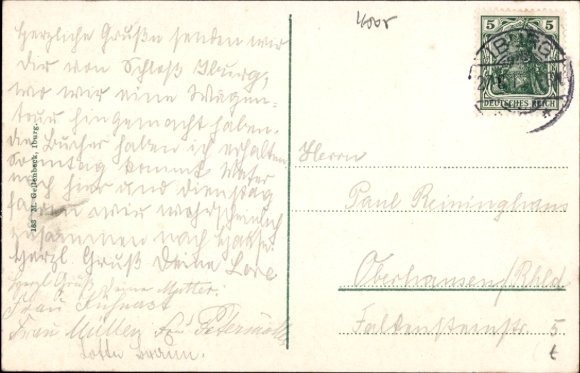 4005
Herzliche Grüße senden wir
Dir von Schloß Iburg,
wo wir eine Wagen-
tour hingemacht haben.
Die Bücher haben ich erhalten.
Sonntag kommt Vater
nach hier und Dienstag
fahren wir wahrscheinlich
zusammen nach
Herzl. Gruß Deine Lore
Herzl. Gruß Deine Mutter.
Frau
Frau Müller Frau
Lotte
183 M. Gellenbeck, Iburg.
5
DEUTSCHES REICH
IBURG
Herrn
Paul Reininghaus
Oberhausen/Rhld
Falkensteinstr 5